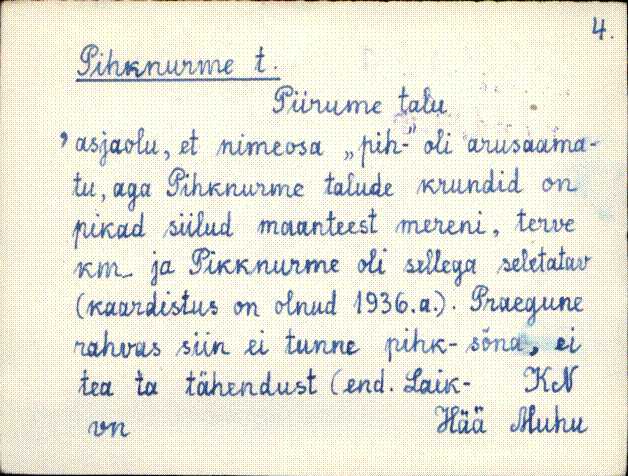 4.
Pihknurme t.
Piirume talu
, asjaolu, et nimeosa „pih-" oli arusaama-
tu, aga Pihknurme talude krundid on
pikad siilud maanteest mereni, terve
km - ja Pikknurme oli sellega seletatav
(kaardistus on olnud 1936.a.). Praegune
rahvas siin ei tunne pihk-sõna, ei
tea ta tähendust (end. Laik- KN
vn Hää Muhu